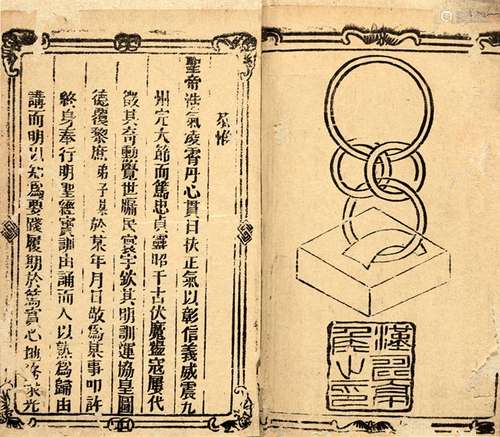 漢壽亭
侯之印
恭惟
聖帝浩氣凌霄丹心貫日扶正氣以彰信義威震九
州完大節而篤忠貞靈昭千古伏魔盪寇屢代
徵其奇勳覺世牖民寰宇欽其明訓運協皇圖
德覆黎庶弟子某於某年月日敬為某事叩許
終身奉行明聖經寶訓由誦而入以熟為歸由
講而明以知為要踐履期於篤實心地務求光